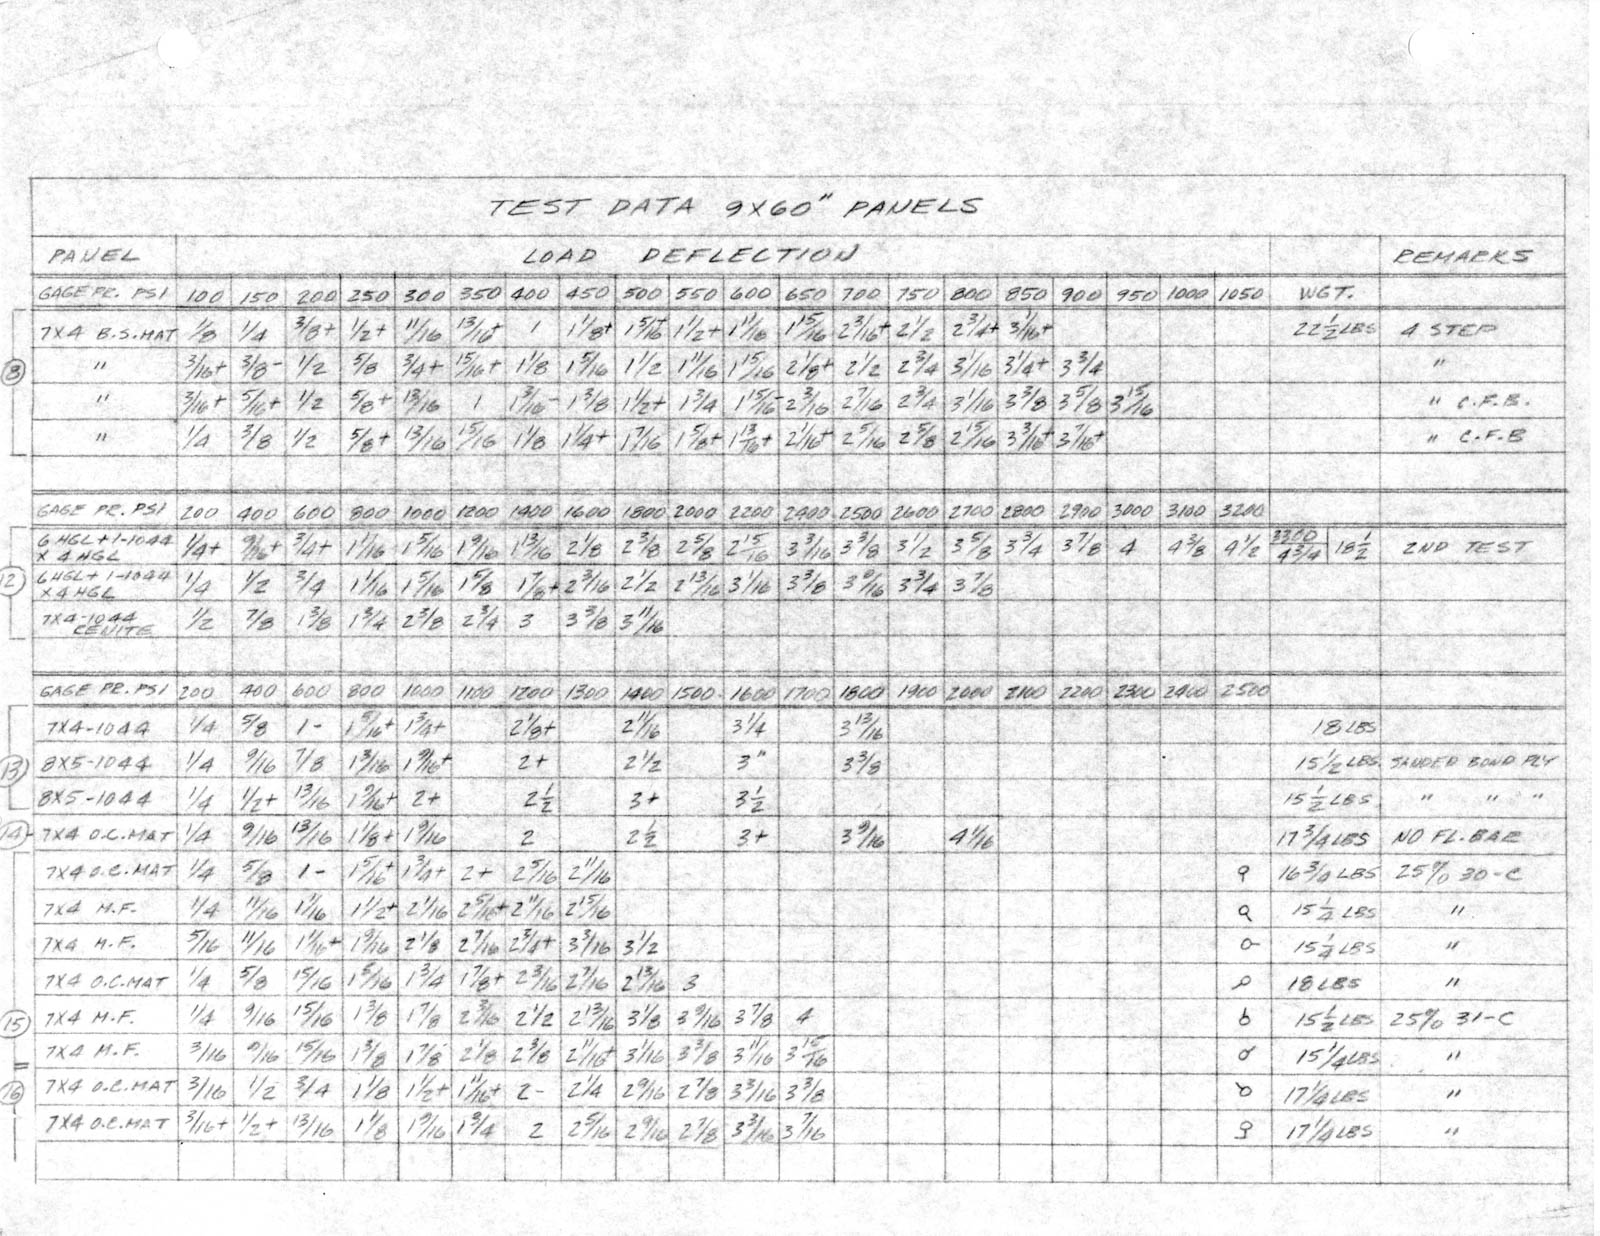 TEST DATA 9X60" PANELS
PANEL LOAD DEFLECTION REMARKS
GAGE PR. PSI 100 150 200 250 300 350 400 450 500 550 600 650 700 750 800 850 900 950 1000 1050 WGT.
7X4 B.S.MAT 1/8 1/4 3/8+ 1/2+ 11/16 13/16+ 1 1 1/8+ 1 5/16+ 1 1/2+ 1 11/16 1 15/16 2 3/16+ 2 1/2 2 3/4+ 3 1/16+ 22 1/2 LBS 4 STEP
8 " 3/16+ 3/8- 1/2 5/8 3/4+ 15/16+ 1 1/8 1 5/16 1 1/2 1 11/16 1 15/16 2 1/8+ 2 1/2 2 3/4 3 1/16 3 1/4+ 3 3/4 "
" 3/16+ 5/16+ 1/2 5/8+ 13/16 1 1 3/16- 1 3/8 1 1/2+ 1 3/4 1 15/16- 2 3/16 2 7/16 2 3/4 3 1/16 3 3/8 3 5/8 3 15/16 " C.F.B.
" 1/4 3/8 1/2 5/8+ 13/16 15/16 1 1/8 1 1/4+ 1 7/16 1 5/8+ 1 13/16+ 2 1/16+ 2 5/16 2 5/8 2 15/16 3 3/16+ 3 7/16+ " C.F.B
GAGE PR. PSI 200 400 600 800 1000 1200 1400 1600 1800 2000 2200 2400 2500 2600 2700 2800 2900 3000 3100 3200
6 HGL+1-1044 X 4 HGL 1/4+ 9/16+ 3/4+ 1 1/16 1 5/16 1 9/16 1 13/16 2 1/8 2 3/8 2 5/8 2 15/16 3 3/16 3 3/8 3 1/2 3 5/8 3 3/4 3 7/8 4 4 3/8 4 1/2 3300 4 3/4 18 1/2 2ND TEST
12 6 HGL+1-1044 X 4 HGL 1/4 1/2 3/4 1 1/16 1 5/16 1 5/8 1 7/8+ 2 3/16 2 1/2 2 13/16 3 1/16 3 3/8 3 9/16 3 3/4 3 7/8
7X4-1044 CENITE 1/2 7/8 1 3/8 1 3/4 2 3/8 2 3/4 3 3 3/8 3 11/16
GAGE PR. PSI 200 400 600 800 1000 1100 1200 1300 1400 1500 1600 1700 1800 1900 2000 2100 2200 2300 2400 2500
7X4-1044 1/4 5/8 1- 1 5/16+ 1 3/4+ 2 1/8+ 2 11/16 3 1/4 3 13/16 18 LBS
13 8X5-1044 1/4 9/16 7/8 1 3/16 1 9/16+ 2+ 2 1/2 3" 3 3/8 15 1/2 LBS SANDED BOND PLY
8X5-1044 1/4 1/2+ 13/16 1 9/16+ 2+ 2 1/2 3+ 3 1/2 15 1/2 LBS " " "
14 7X4 O.C.MAT 1/4 9/16 13/16 1 1/8+ 1 9/16 2 2 1/2 3+ 3 9/16 4 1/16 17 3/4 LBS NO FL.BAR
7X4 O.C.MAT 1/4 5/8 1- 1 5/16+ 1 3/4+ 2+ 2 5/16 2 11/16 16 3/4 LBS 25% 30-C
7X4 M.F. 1/4 11/16 1 1/16 1 1/2+ 2 1/16 2 5/16+ 2 11/16 2 15/16 15 1/4 LBS "
7X4 M.F. 5/16 11/16 1 1/16+ 1 9/16 2 1/8 2 7/16 2 3/4+ 3 3/16 3 1/2 15 1/4 LBS "
7X4 O.C.MAT 1/4 5/8 15/16 1 5/16 1 3/4 1 7/8+ 2 3/16 2 7/16 2 13/16 3 18 LBS "
15 7X4 M.F. 1/4 9/16 15/16 1 3/8 1 7/8 2 3/16 2 1/2 2 13/16 3 1/8 3 9/16 3 7/8 4 15 1/2 LBS 25% 31-C
7X4 M.F. 3/16 9/16 15/16 1 3/8 1 7/8 2 1/8 2 3/8 2 11/16+ 3 1/16 3 3/8 3 11/16 3 15/16 15 1/4 LBS "
16 7X4 O.C.MAT 3/16 1/2 3/4 1 1/8 1 1/2+ 1 11/16+ 2- 2 1/4 2 9/16 2 7/8 3 3/16 3 3/8 17 1/4 LBS "
7X4 O.C.MAT 3/16+ 1/2+ 13/16 1 1/8 1 9/16 1 3/4 2 2 5/16 2 9/16 2 7/8 3 3/16 3 7/16 17 1/4 LBS "